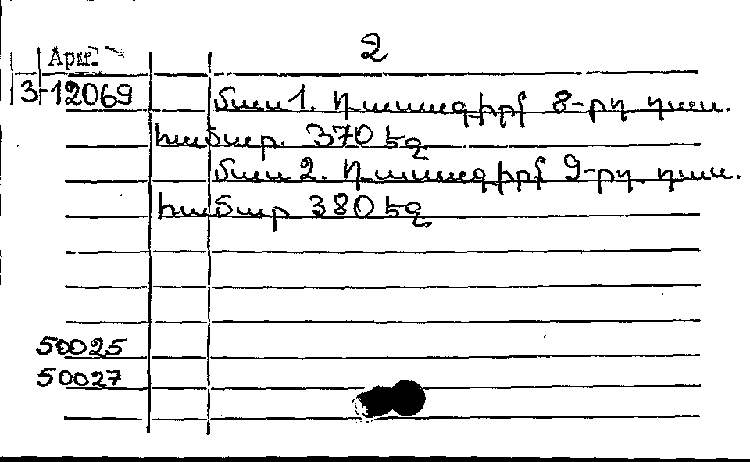 2
Арм.
3-12069
մաս 1. Դասագիրք 8-րդ դաս.
համար. 370 եզ
մաս 2. Դասագիրք 9-րդ. դաս.
համար 380 եզ
50025
50027